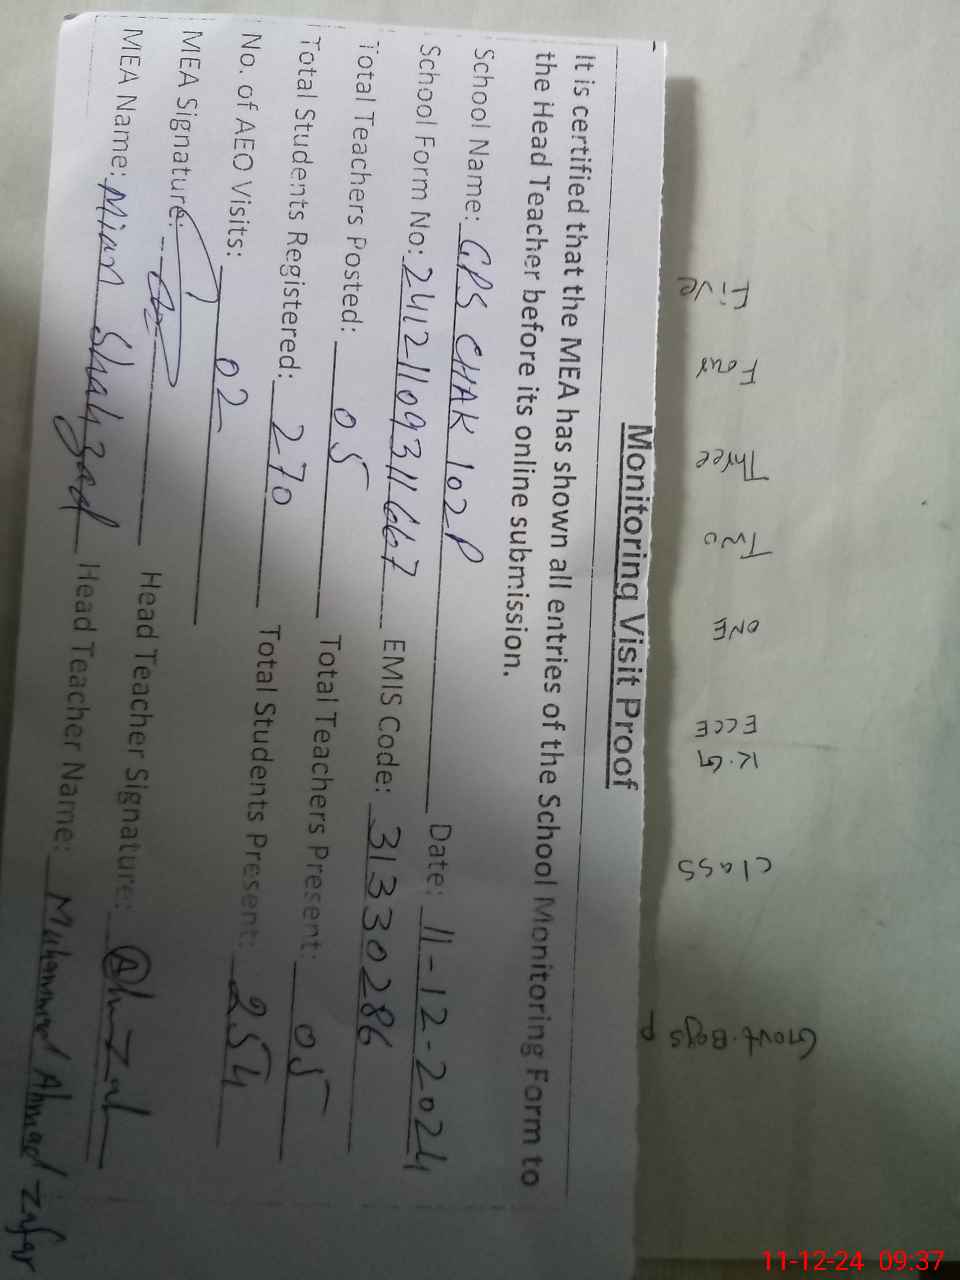 Monitoring Visit Proof
It is certified that the MEA has shown all entries of the School Monitoring Form to
the Head Teacher before its online submission.
School Name: GPS CHAK 102P Date: 11-12-2024
School Form No: 24121109311667 EMIS Code: 31330286
Total Teachers Posted: 05 Total Teachers Present: 05
Total Students Registered: 270 Total Students Present: 254
No. of AEO Visits: 02
MEA Signature: Head Teacher Signature:
MEA Name: Mian Shahzad Head Teacher Name: Muhammad Ahmad Zafar
Govt. Boys P
Class
K.G
ECCE
ONE
Two
Three
Four
Five
11-12-24 09:37